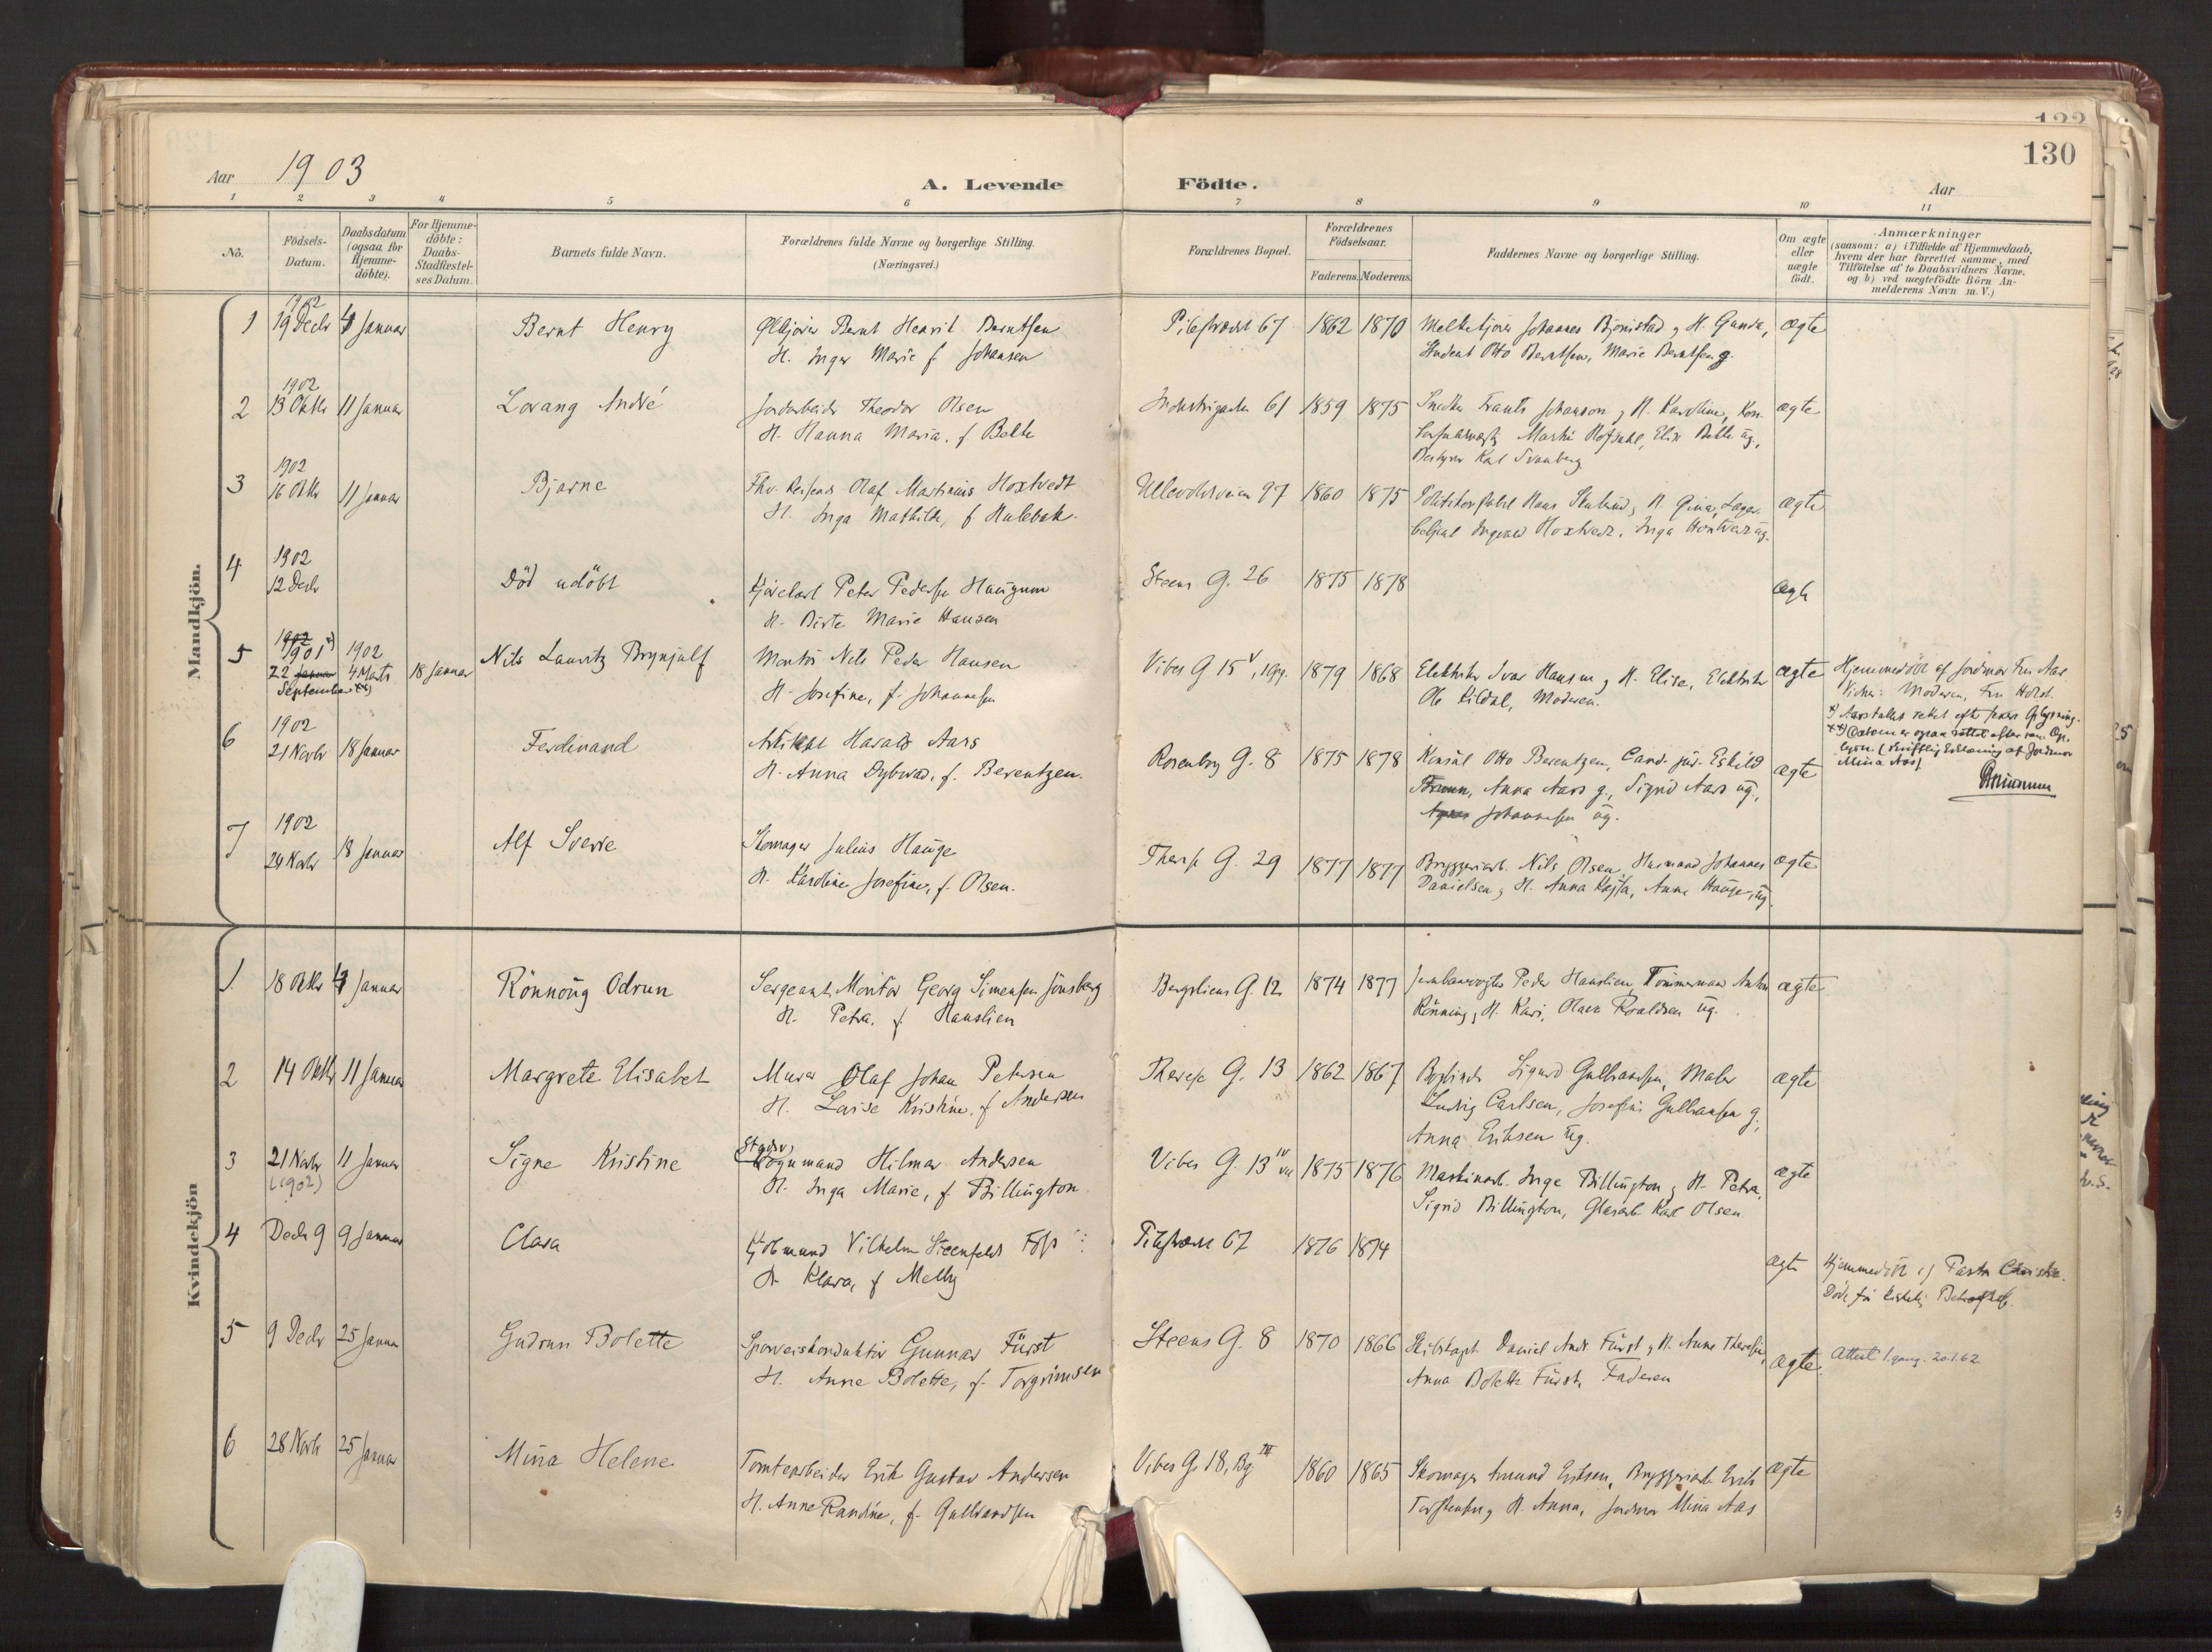 130
Aar 1903
A. Levende Födte.
Aar
1 2 3 4 5 6 7 8 9 10 11
No.
Födsels-Datum.
Daabsdatum (ogsaa for Hjemme-döbte).
For Hjemme-döbte: Daabs-Stadfæstel-ses Datum.
Barnets fulde Navn.
Forældrenes fulde Navne og borgerlige Stilling. (Næringsvei.)
Forældrenes Bopæl.
Forældrenes Födselsaar.
Faderens. Moderens.
Faddernes Navne og borgerlige Stilling.
Om ægte eller uægte födt.
Anmærkninger
(saasom: a) i Tilfælde af Hjemmedaab,
hvem der har forrettet samme, med
Tilföielse af to Daabsvidners Navne.
og b) ved uægtefödte Börn An-
melderens Navn m.V.)
Mandkjön.
1 1902 19 Decbr 4 Januar Bernt Henry Berntsen Pilestrædet 67 1862 1870 ægte
H. Inger Marie f Johansen
Student Otto Berntsen, Marie Berntsen g.
2 1902 13 Oktbr 11 Januar Lorang André Theodor Olsen Industrigaden 61 1859 1875 ægte
H. Hanna Maria, f. Belte
3 1902 16 Oktbr 11 Januar Bjarne Olaf Martinius Hoxtvedt Ullevoldsveien 97 1860 1875 ægte
H. Inga Mathilde, f.
4 1902 12 Decbr Död udöbt Peter Pedersen Haugum Steens G. 26 1875 1878 ægte
H. Birte Marie Hansen
5 1902 1901 x) 22 Januar September xx) 1902 4 Marts 18 Januar Nils Lauritz Brynjulf Montör Nils Peder Hansen Vibes G 15 1879 1868 Elektriker Ivar Hansen, H. Elise, Elektriker ægte Hjemmedöbt af Jordmor Fru Aas
H. Josefine, f. Johannesen
Ole Kildal, Moderen.
Vidner: Moderen, Fru Holst.
x) Aarstallet rettet efter senere Oplysning.
xx) Datoen er ogsaa rettet efter sen. Op-
lysn. (skriftlig Erklæring af Jordmor
Mina Aas).
6 1902 21 Novbr 18 Januar Ferdinand Arkitekt Harald Aars Rosenborg G. 8 1875 1878 Konsul Otto Berentzen, Cand. jur. Eskild ægte
H. Anna Dybwad, f. Berentzen.
Anna Aars g., Sigrid Aars ug.,
Johannesen ug.
7 1902 24 Novbr 18 Januar Alf Sverre Skomager Julius Hauge Therese G. 29 1877 1877 Bryggeriarb. Nils Olsen, Johannes ægte
H. Karoline Josefine, f. Olsen.
Danielsen, H. Anna Kajsa, Anna Hauge, ug.
Kvindekjön
1 18 Oktbr 4 Januar Rönnoug Odrun Sergeant, Montör Georg Simensen Jönsberg Bergsliens G. 12 1874 1877 Peder Hauslien, Tömmermand Anton ægte
H. Petra, f. Hauslien
Rönning, H. Kari, Olava Roaldsen ug.
2 14 Oktbr 11 Januar Margrete Elisabet Murer Olaf Johan Petersen Therese G. 13 1862 1867 Sigurd Gulbrandsen, Maler ægte
H. Lovise Kristine, f Andersen
Ludvig Carlsen, Josefine Gulbransen g,
Anna Eriksen ug.
3 21 Novbr (1902) 11 Januar Signe Kristine Vognmand Hilmar Andersen Vibes G. 13 1875 1876 Maskinarb. Inge Billington, H. Petra, ægte
H. Inga Marie, f. Billington
Sigrid Billington, Glasarb. Karl Olsen
4 Decbr 9 9 Januar Clara Kjöbmand Vilhelm Steenfeldt Foss Pilestræde 67 1876 1874 ægte Hjemmedöbt af Pastor Christie.
H. Klara, f Melby
Död för kirkelig
5 9 Decbr 25 Januar Gudrun Bolette Sporveiskonduktör Gunnar Fürst Steens G. 8 1870 1866 Skibskapt. Daniel Andr. Fürst, H. Anne Therese, ægte. Attest 1. gang. 20.1.62
H. Anne Bolette, f. Torgrimsen
Anna Bolette Fürst, Faderen
6 28 Novbr 25 Januar Mina Helene Tomtearbeider Erik Gustav Andersen Vibes G. 18, Bg III 1860 1865 Skomager Amund Eriksen, Bryggeriarb. Erik ægte
H. Anne Randine, f. Gulbrandsen
Torstensen, H. Anna, Jordmor Mina Aas